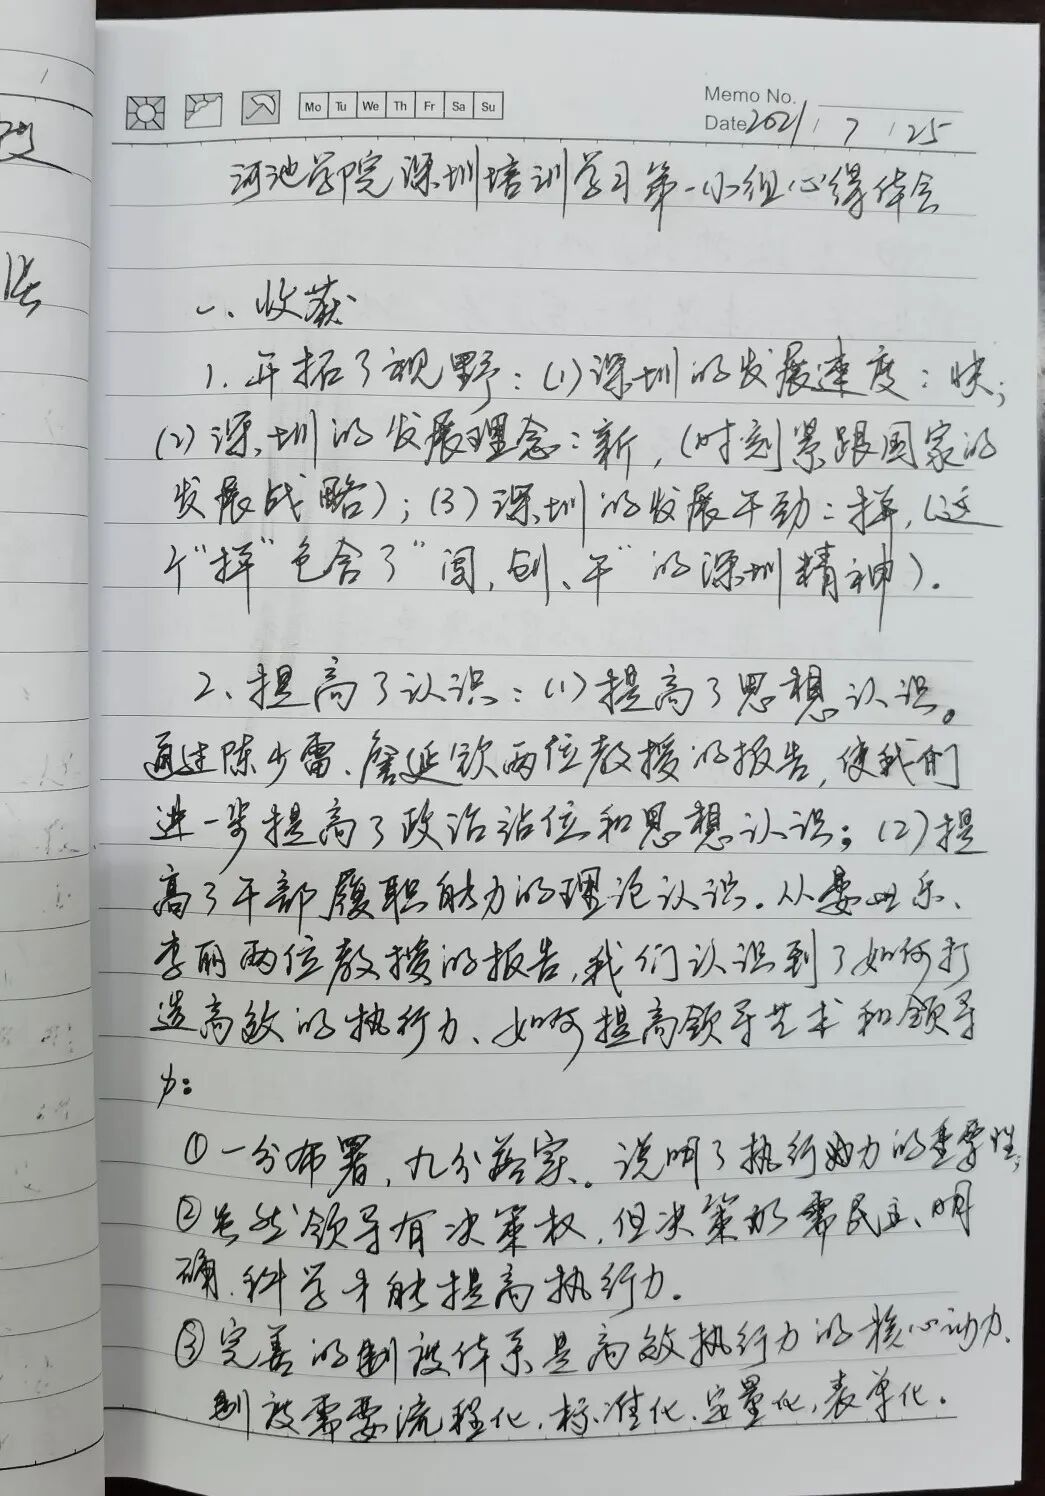 Mo Tu We Th Fr Sa Su
Memo No.
Date 2021 / 7 / 25
河池学院深圳培训学习第一小组心得体会
一、收获
1. 开拓了视野：(1)深圳的发展速度：快；
(2)深圳的发展理念：新，(时刻紧跟国家的
发展战略)；(3)深圳的发展干劲：拼，(这
个“拼”包含了“闯、创、干”的深圳精神)。
2、提高了认识：(1)提高了思想认识。
通过陈少雷、詹延钦两位教授的报告，使我们
进一步提高了政治站位和思想认识；(2)提
高了干部履职能力的理论认识。从娄世乐、
李丽两位教授的报告，我们认识到了如何打
造高效的执行力、如何提高领导艺术和领导
力：
①一分布署，九分落实。说明了执行力的重要性；
②虽然领导有决策权，但决策前需民主、明
确、科学才能提高执行力。
③完善的制度体系是高效执行力的核心动力、
制度需要流程化、标准化、定量化、表单化。